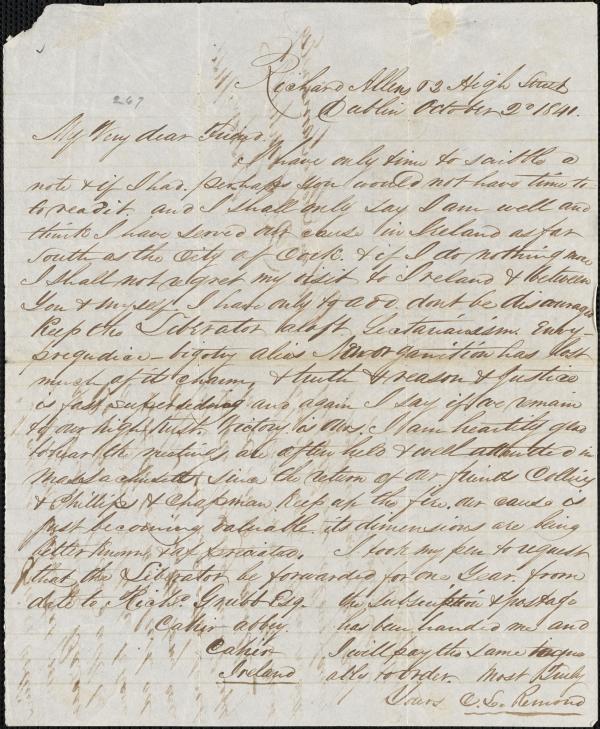 267
Richard Allen 52 High Street
Dublin October 2d 1841.
My Very dear Friend.
I have only time to scibble a
note & if I had. perhaps you would not have time to-
to read it. and I shall only say I am well and
think I have served our cause in Ireland as far
South as the City of Cork. & if I do nothing more
I shall not regret my visit to Ireland & between
You & myself I have only to add dont be discouraged
Keep the Liberator aloft Sectarianism Envy
prejudice – bigotry alias New organition has lost
much of its charm, & truth & reason & Justice
is fast superseding and again I say if we remain
to our high trust. Victory is ours. I am heartily glad
to hear the meetings are often held & well attended in
Massachusetts since the return of our friends Collins
& Phillips & Chapman Keep up the fire. our cause is
just becoming valuable. its dimensions are being
better known & appriciated. I took my pen to request
that the Liberator be forwarded for one Year. from
date to Richd. Grubb Esq. the subscription & postage
Cahir abbey. has been handed me and
Cahir I will pay the same
Ireland ably to order. Most Truly
Yours C. L. Remond